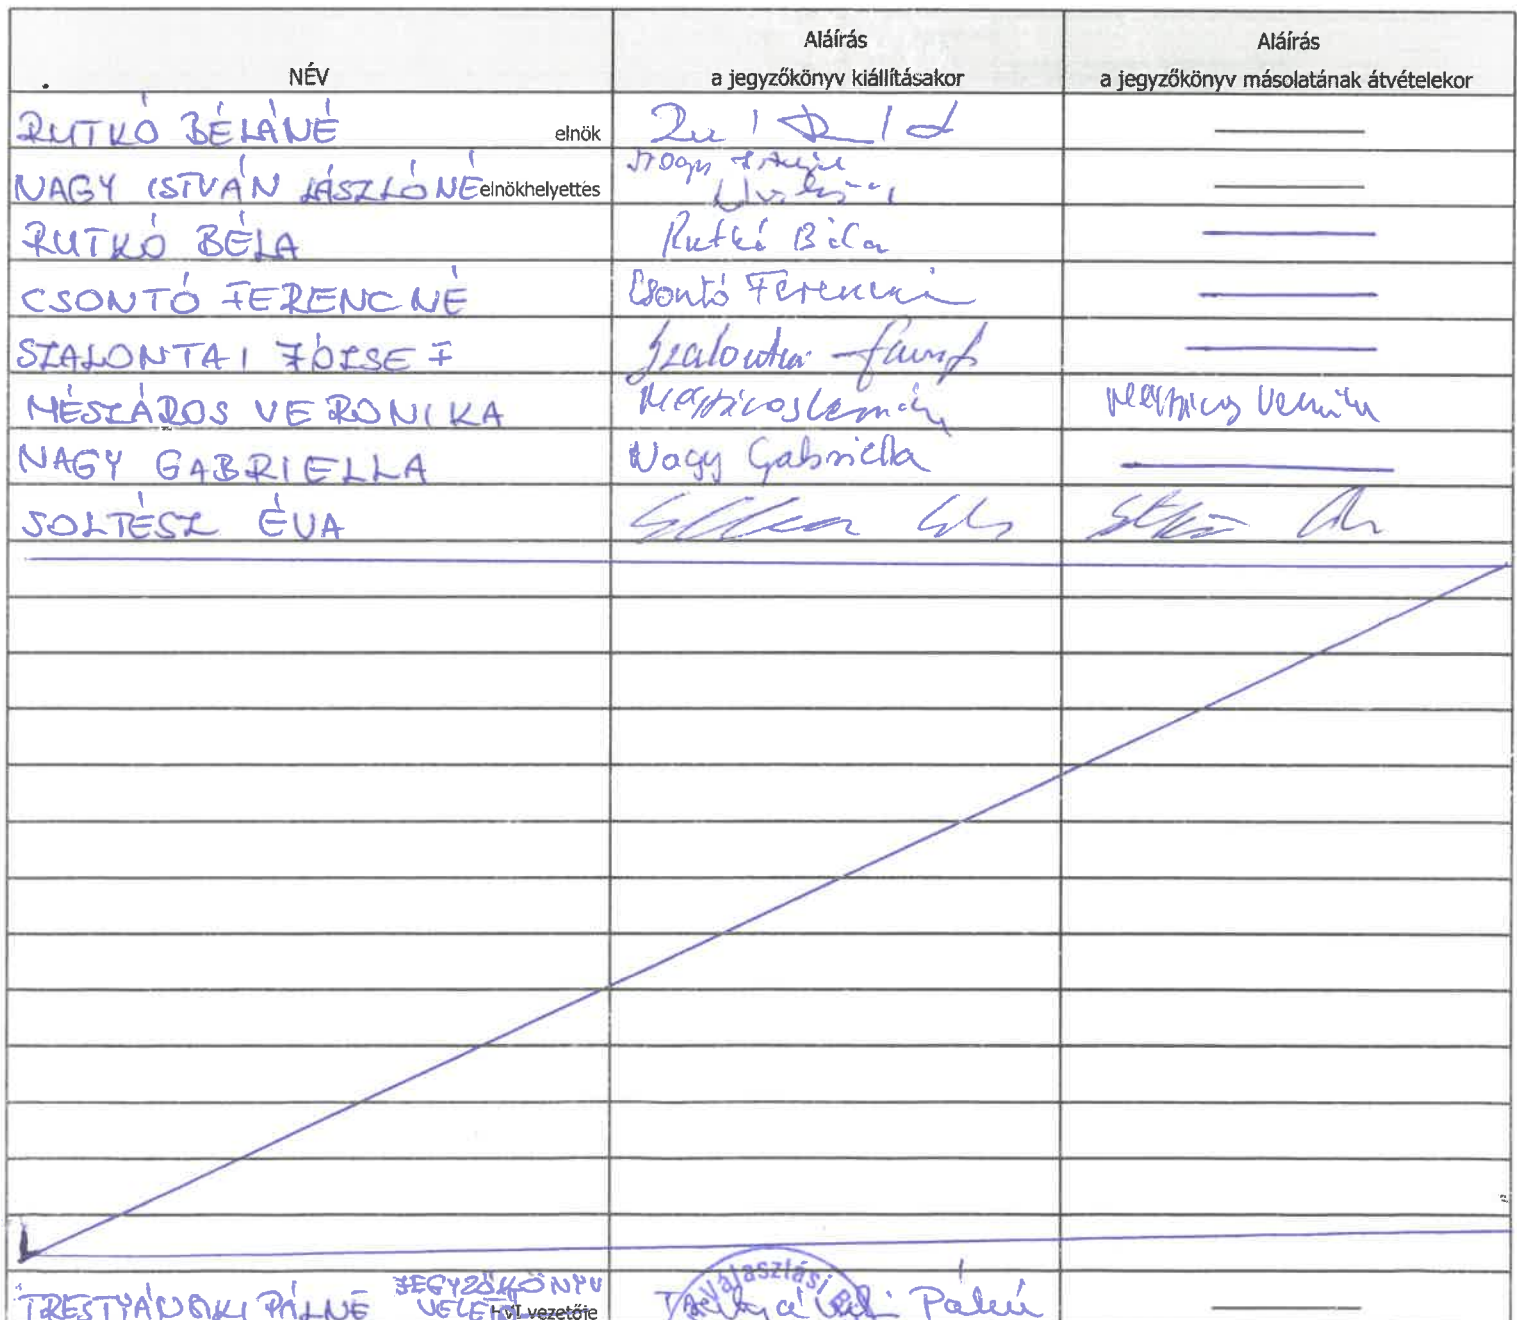 NÉV
Aláírás
a jegyzőkönyv kiállításakor
Aláírás
a jegyzőkönyv másolatának átvételekor
RUTKÓ BÉLÁNÉ elnök
NAGY ISTVÁN LÁSZLÓNÉ elnökhelyettes
RUTKÓ BÉLA Rutkó Béla
CSONTÓ FERENCNÉ Csontó Ferencné
SZALONTAI JÓZSEF Szalontai József
MÉSZÁROS VERONIKA Mészáros Veronika Mészáros Veronika
NAGY GABRIELLA Nagy Gabriella
SOLTÉSZ ÉVA
JEGYZŐKÖNYV
PÁLNÉ HVI vezetője Pálné